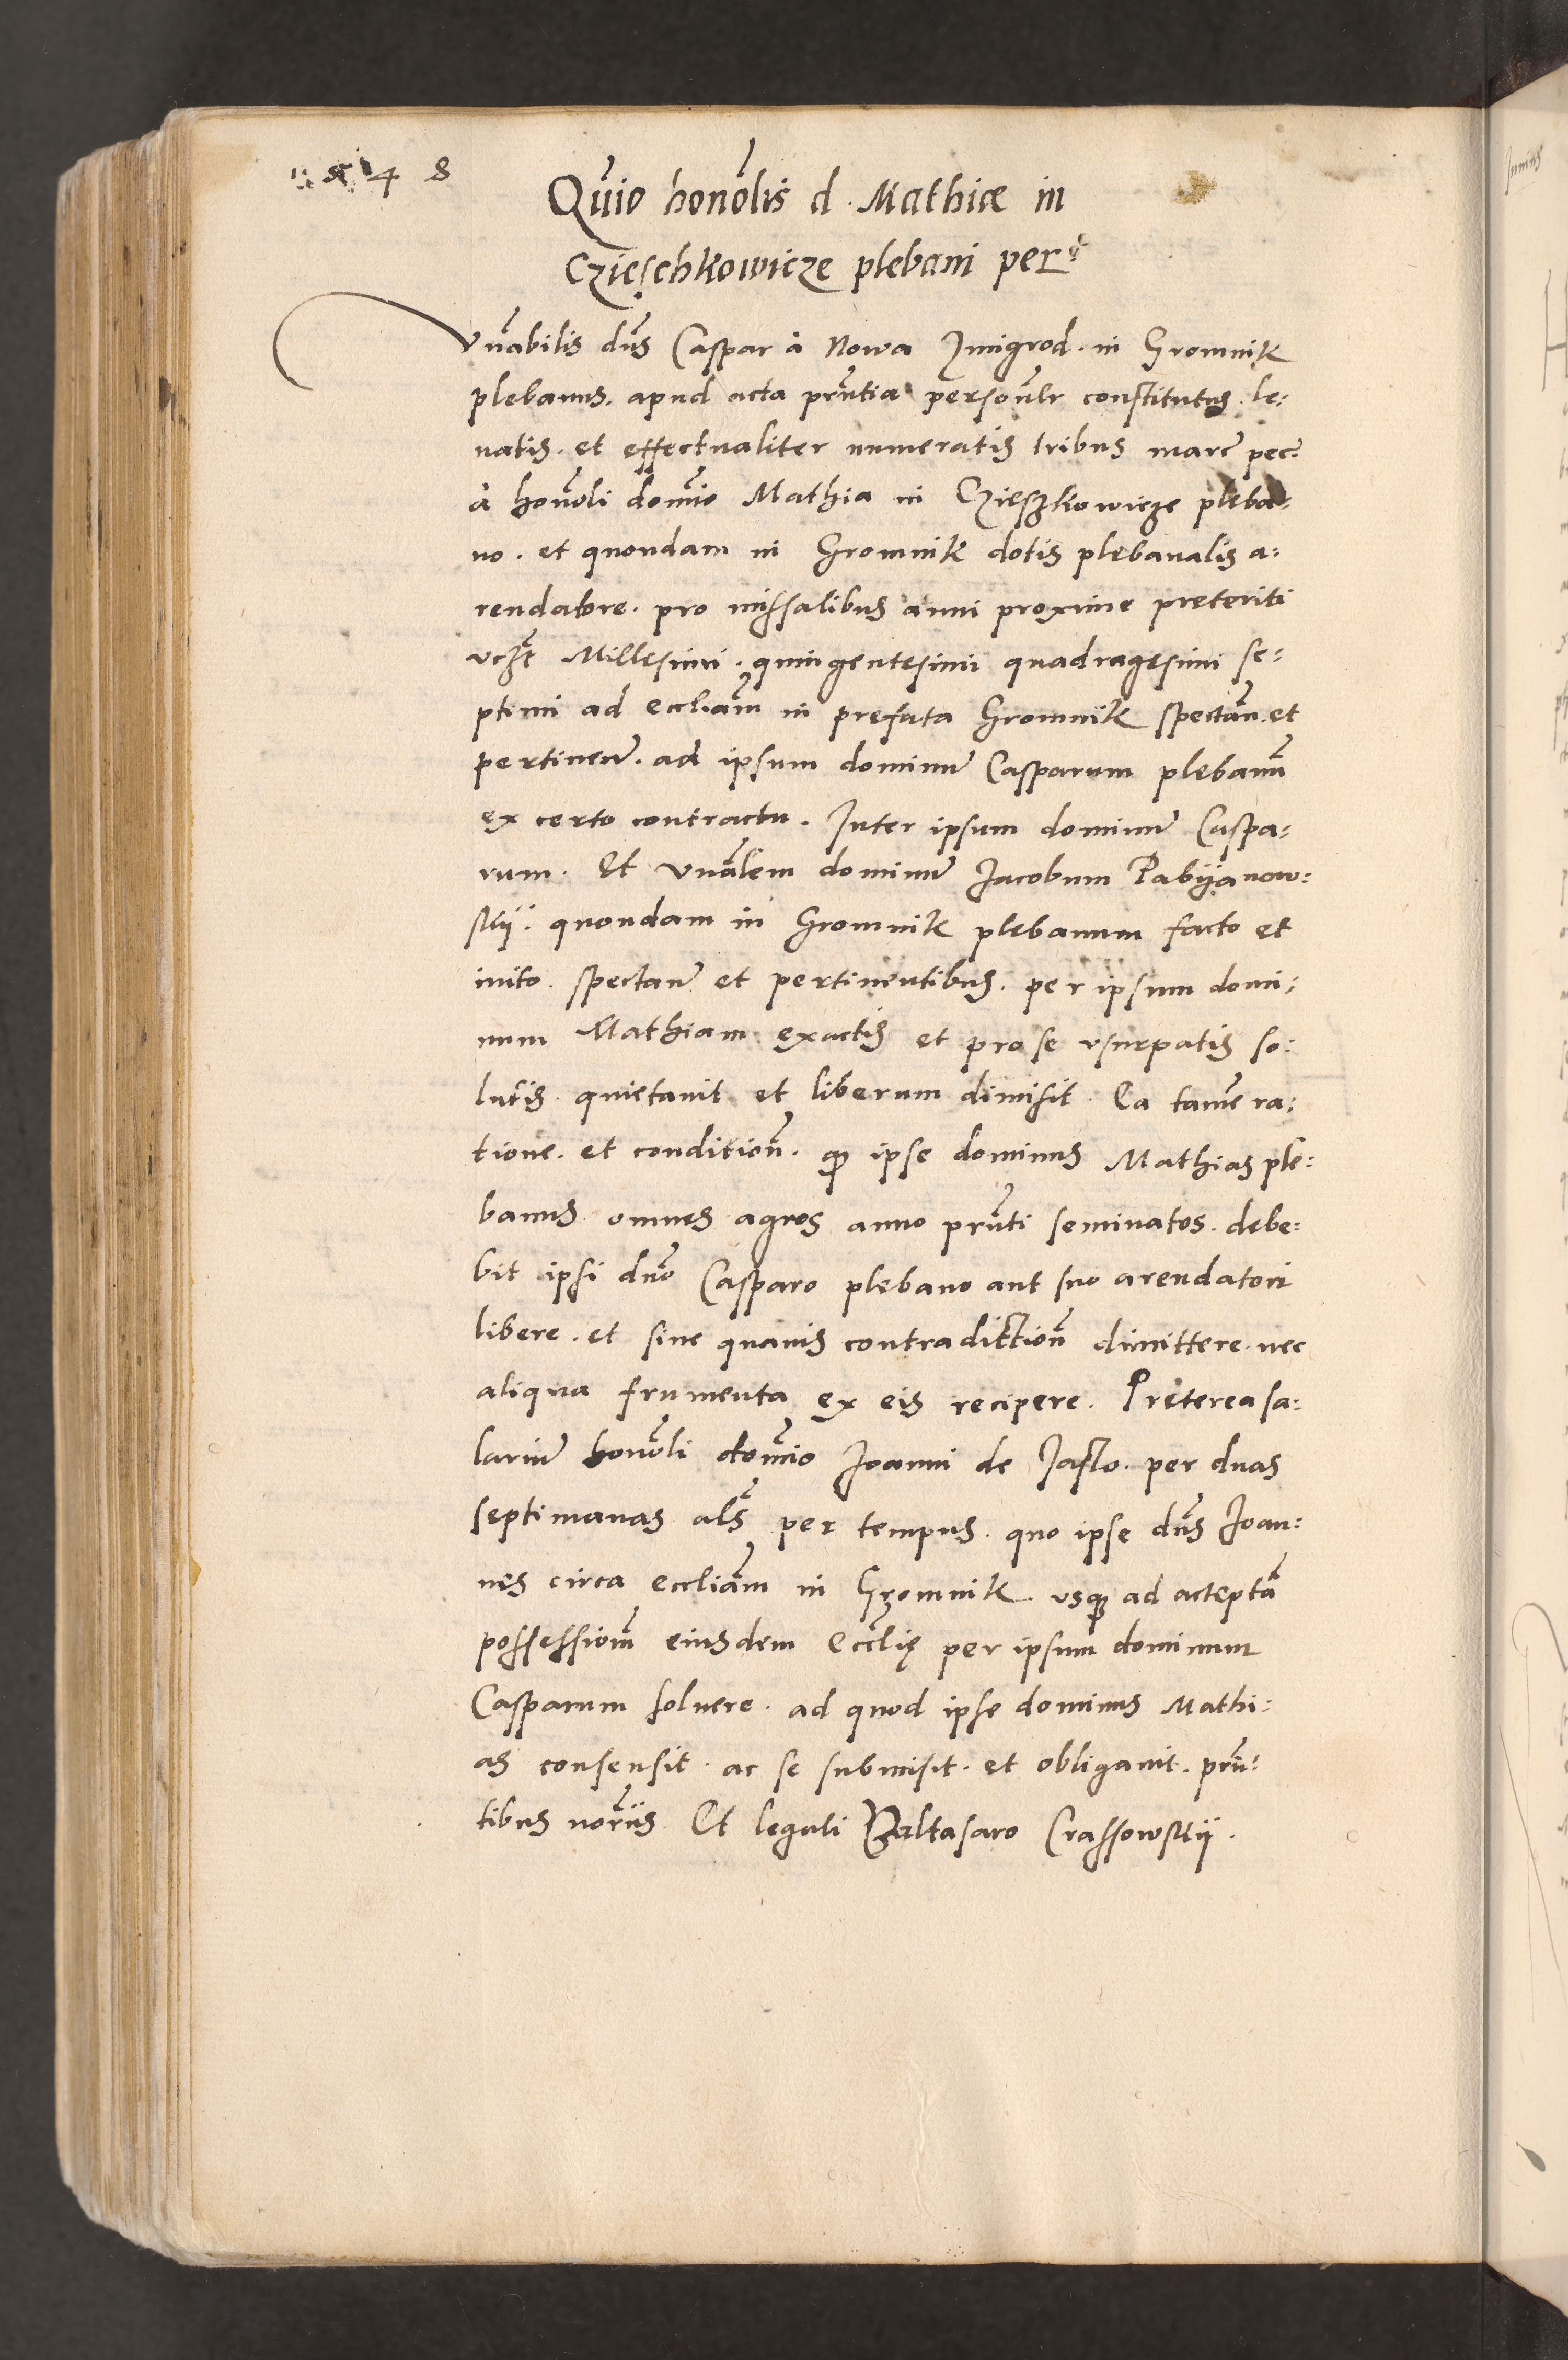 1548
Quio honolis d. Mathiæ in
Czieschkowicze plebani per
Vnabilis dns Caspar à Nowa Zmigrod. in Gromnik
plebanus. apud acta prntia personlr constitutus. le:
uatis. et effectualiter numeratis tribus marc pec:
à honoli domio Mathia in Czieszkowicze pleba:
no. et quondam in Gromnik dotis plebanalis a:
rendatore. pro missalibus anni proxime preteriti
vczt Millesimi. quingentesimi quadragesimi se:
ptimi ad eccliam in prefata Gromnik spectan. et
pertinen. ad ipsum dominu Casparum plebanu
ex certo contractu. Inter ipsum dominu Caspa:
rum. Et Vnalem dominu Jacobum Pabijanow:
skij. quondam in Gromnik plebanum facto et
inito. spectan et pertinentibus. per ipsum domi:
num Mathiam exactis et pro se vsurpatis so:
lutis. quietauit et liberum dimisit. Ea tame ra:
tione. et condition. qp ipse dominus Mathias ple:
banus omnes agros anno prnti seminatos. debe:
bit ipsi dno Casparo plebano aut suo arendatori
libere. et sine quauis contradiction dimittere. nec
aliqua frumenta ex eis recipere. Preterea sa:
lariu honoli domio Joanni de Jaslo. per duas
septimanas als per tempus. quo ipse dns Joan:
nes circa eccliam in Gromnik. vsqp ad accepta
possessiom eiusdem Ecclię per ipsum dominum
Casparum soluere. ad quod ipse dominus Mathi:
as consensit. ac se submisit. et obligauit. prn:
tibus noriis. Et leguli Baltasaro Crassowskij.